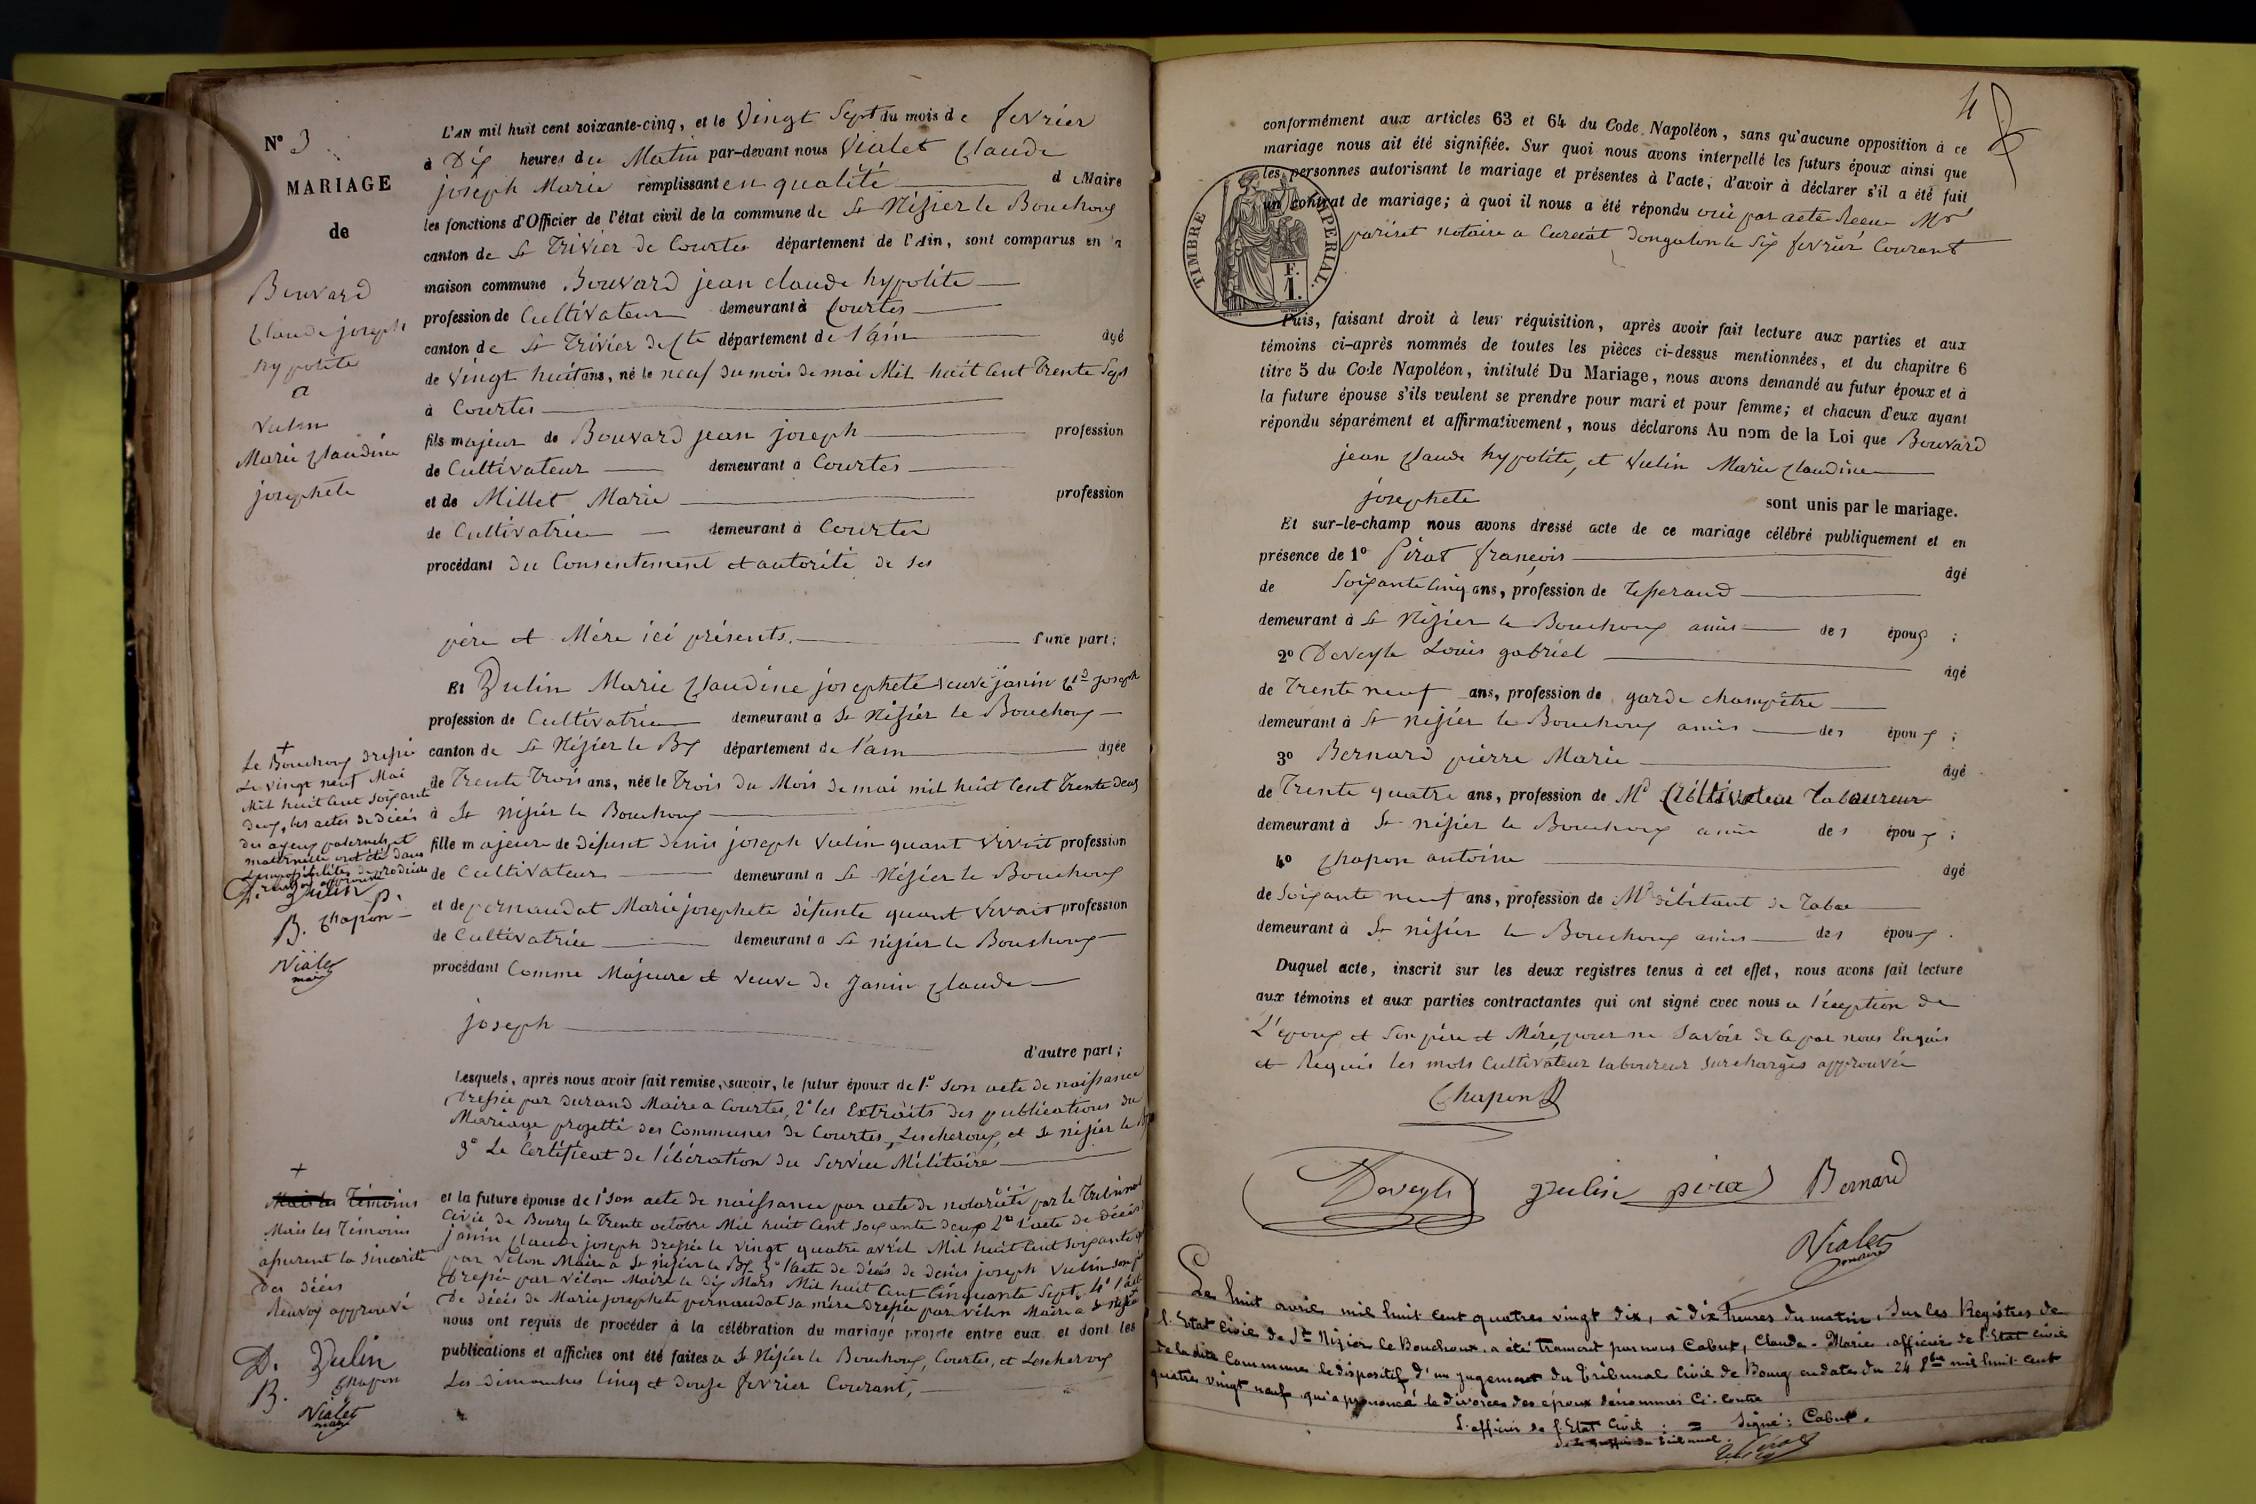 N° 3
MARIAGE
de
Bouvard
Claude joseph
hypolite
a
Vulin
Marie Claudine
josephete
L'AN mil huit cent soixante-cinq, et le Vingt Sept du mois de fevrier
à Dix heures du Matin par-devant nous Vialet Claude
joseph Marie remplissant en qualité d Maire
les fonctions d'Officier de l'état civil de la commune de St Nizier le Bouchoux
canton de St Trivier de Courtes département de l'Ain, sont comparus en la
maison commune Bouvard jean claude hypolite
profession de Cultivateur demeurant à Courtes
canton de St Trivier de Cte département de l'ain âgé
de Vingt huit ans, né le neuf du mois de mai Mil huit Cent Trente Sept
à Courtes
fils majeur de Bouvard jean joseph profession
de Cultivateur demeurant a Courtes
et de Millet Marie profession
de Cultivatrice demeurant à Courtes
procédant du Consentement et autorité de ses
père et Mére ici présents. d'une part;
Et Vulin Marie Claudine josephete veuve janin Cld joseph
profession de Cultivatrice demeurant a St Nizier le Bouchoux
canton de St Nizier le Bx département de l'ain âgée
de Trente Trois ans, née le Trois du Mois de mai mil huit Cent Trente deux
à St Nizier le Bouchoux
fille majeure de défunt denis joseph Vulin quant Vivait profession
de Cultivateur demeurant a St Nizier le Bouchoux
et de pernaudat Marie josephete défunte quant Vivait profession
de Cultivatrice demeurant a St nizier le Bouchoux
procédant Comme Majeure et veuve de Janin Claude
joseph
d'autre part;
+
Le Bouchoux dressé
Le vingt neuf Mai
Mil huit Cent Soixante
deux, les actes de décés
des ayeux paternels et
maternelle ont été dans
l'impossibilités de produire
renvoy approuvé
D. Vulin P.
B. Chapon
Vialet
maire
Lesquels, après nous avoir fait remise, savoir, le futur époux de 1° Son acte de naissance
Dressée par durand Maire a Courtes, 2° les Extraits des publications du
Mariage projetté des Communes de Courtes, Lescheroux, et St nizier le Bx
3° Le Certificat de libération du Service Militaire
et la future épouse de 1° Son acte de naissance par acte de notoriété par le Tribunal
Civil de Bourg le Trente octobre Mil huit Cent Soixante deux 2° l'acte de décés
janin Claude joseph dressée le vingt quatre avril Mil huit Cent Soixante
par Vélon Maire a St nizier le Bx 3° l'acte de décés de denis joseph Vulin son père
dressée par Vélon Maire le dix Mars Mil huit Cent Cinquante Sept, 4° l'acte
De décés de Marie josephete pernaudat sa mère dressée par Vélon Maire a St nizier
nous ont requis de procéder à la célébration du mariage projeté entre eux et dont les
publications et affiches ont été faites a St Nizier le Bouchoux, Courtes, et Lescheroux
Les dimanches Cinq et douze fevrier Courant,
+
Mais les Témoins
Mais les Témoins
assurent la Sincerité
des décés
Renvoy approuvé
D. Vulin
B. Chapon
Vialet
maire
4
conformément aux articles 63 et 64 du Code Napoléon, sans qu'aucune opposition à ce
mariage nous ait été signifiée. Sur quoi nous avons interpellé les futurs époux ainsi que
les personnes autorisant le mariage et présentes à l'acte, d'avoir à déclarer s'il a été fait
un contrat de mariage; à quoi il nous a été répondu oui par acte Recu Mr
pariset notaire a Curciat dongalon le Six fevrier Courant
TIMBRE IMPERIAL.
F.
1.
Puis, faisant droit à leur réquisition, après avoir fait lecture aux parties et aux
témoins ci-après nommés de toutes les pièces ci-dessus mentionnées, et du chapitre 6
titre 5 du Code Napoléon, intitulé Du Mariage, nous avons demandé au futur époux et à
la future épouse s'ils veulent se prendre pour mari et pour femme; et chacun d'eux ayant
répondu séparément et affirmativement, nous déclarons Au nom de la Loi que Bouvard
jean Claude hypolite, et Vulin Marie Claudine
josephete sont unis par le mariage.
Et sur-le-champ nous avons dressé acte de ce mariage célébré publiquement et en
présence de 1° Pirat françois âgé
de Soixante Cinq ans, profession de Tisserand
demeurant à St Nizier le Bouchoux amis des époux ;
2° Deveyle Louis gabriel âgé
de Trente neuf ans, profession de garde champêtre
demeurant à St nizier le Bouchoux amis des époux ;
3° Bernard pierre Marie âgé
de Trente quatre ans, profession de Md Cultivateur laboureur
demeurant à St nizier le Bouchoux amis des époux ;
4° Chapon antoine âgé
de Soixante neuf ans, profession de Md débitant de Tabac
demeurant à St nizier le Bouchoux amis des époux .
Duquel acte, inscrit sur les deux registres tenus à cet effet, nous avons fait lecture
aux témoins et aux parties contractantes qui ont signé avec nous a l'éxeption de
L'époux et Son père et Mére, pour ne Savoir de ce par nous Enquis
et Requis les mots Cultivateur laboureur Surchargés approuvée
Chapon
Deveyle Vulin pirat Bernard
Vialet
maire
Le huit avril mil huit cent quatre vingt dix, à dix heures du matin, Sur les Registres de
l'Etat civil de St Nizier le Bouchoux a été transcrit par nous Cabut, Claude-Marie officier de l'Etat civil
de la dite Commune le dispositif d'un jugement du tribunal Civil de Bourg en date du 24 8bre mil huit cent
quatre vingt neuf qui a prononcé le divorce des époux dénommés Ci-Contre
L'officier de l'Etat Civil : = Signé : Cabut.